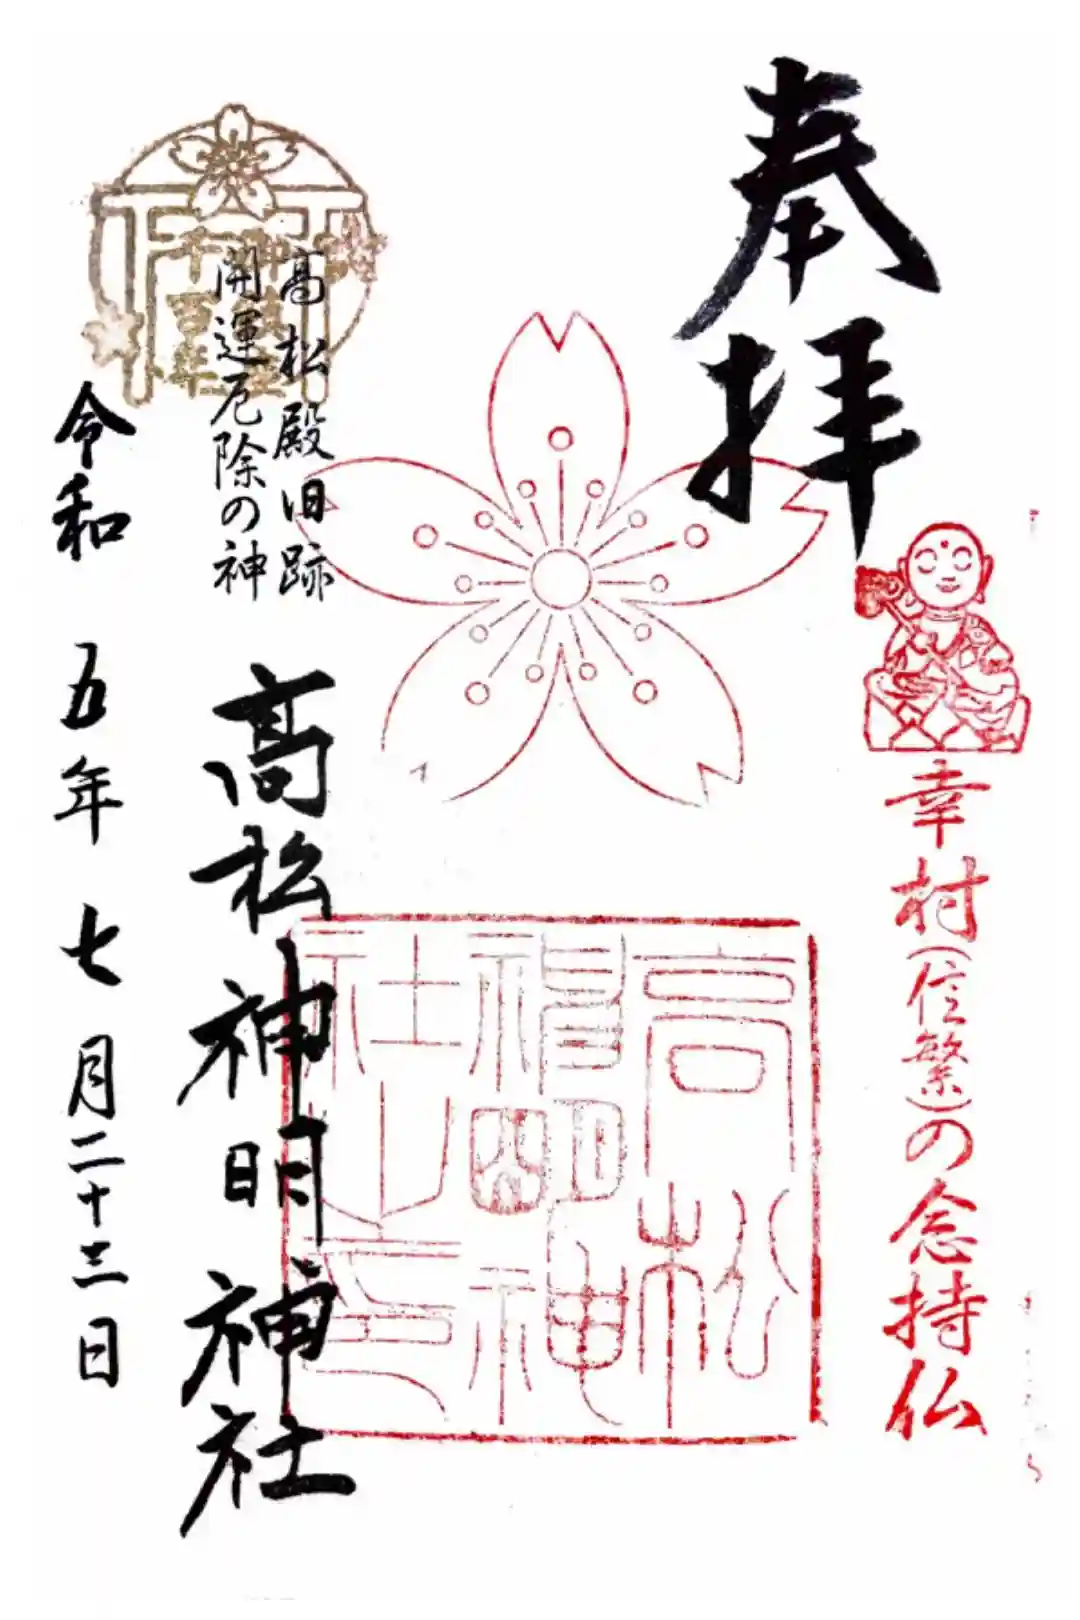 奉拝
幸村(信繁)の念持仏
高松
神明神
社之印
御鎮座
千百年
高松殿旧跡
開運厄除の神
高松神明神社
令和五年七月二十三日